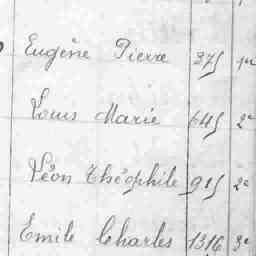 Eugène Pierre 375 1er
Louis Marie 645 2e
Léon Théophile 915 2e
Emile Charles 1316 3e